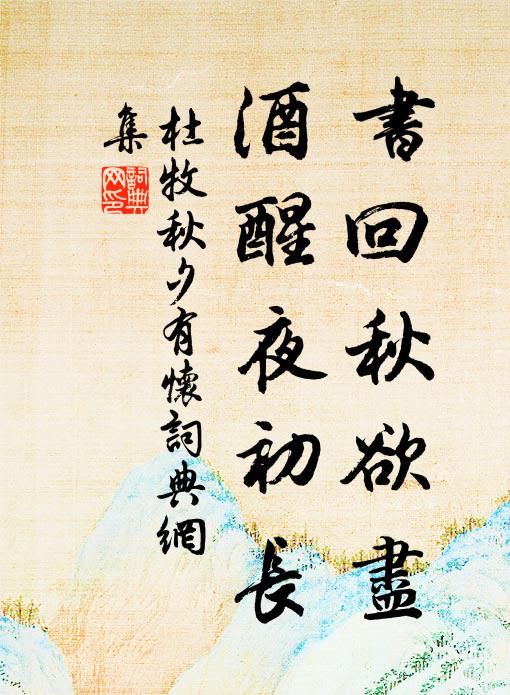 書回秋欲盡
酒醒夜初長
杜牧秋夕有懷詞典網
集
詞典
网印